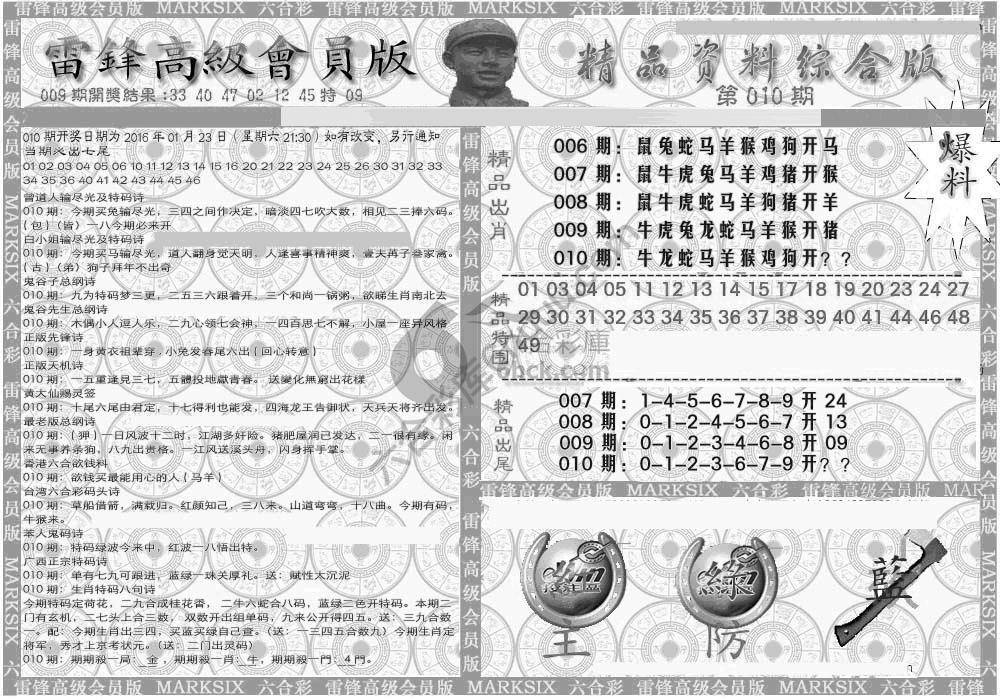 雷锋高级会员版 MARKSIX 六合彩 雷锋高级会员版 MARKSIX 六合彩 雷锋高级会员版 MARKSIX 六合彩 雷锋
雷鋒高級會員版
精品资料综合版
009期開獎結果:33 40 47 02 12 45特 09
第 010 期
010 期开奖日期为 2016 年 01 月 23 日（星期六 21:30）如有改变，另行通知
当期必出七尾
01 02 03 04 05 06 10 11 12 13 14 15 16 20 21 22 23 24 25 26 30 31 32 33
34 35 36 40 41 42 43 44 45 46
曾道人输尽光及特码诗
010 期：今期买兔输尽光，三四之间作决定，暗淡四七吹大数，相见二三捧六码。
{包}（皆）一八今期必来开
白小姐输尽光及特码诗
010 期：今期买马输尽光，道人翻身觉天明，人逢喜事精神爽，妻夫再子叁家离。
{古}（弟）狗子拜年不出奇
鬼谷子总纲诗
010 期：九为特码梦三更，二五三六跟着开，三个和尚一锅粥，欲睇生肖南北去
鬼谷先生总纲诗
010 期：木偶小人逗人乐，二九心领七会神，一四百思七不解，小屋一座异风格
正版先锋诗
010 期：一身黄衣祖辈穿．小兔发春尾六出{回心转意}
正版天机诗
010 期：一五重逢見三七，五體投地獻青春。 送變化無窮出花樣
黄大仙赐灵签
010 期：十尾六尾由君定，十七得利也能发，四海龙王告御状，天兵天将齐出发。
最老版总纲诗
010 期：{狎}一日风波十二时，江湖多奸险。猪肥屋润已发达，二一很有缘。闲
来无事养条狗，八九出贵格。一江风送溪头舟，闪身挥手掌。
香港六合欲钱料
010 期：欲钱买最能用心的人{马羊}
台湾六合彩码头诗
010 期：草船借箭，满载归。红颜知己，三八来。山道弯弯，十八曲。今期有码，
牛猴来。
本人鬼码诗
010 期：特码绿波今来中，红波一八悟出特。
广西正宗特码诗
010 期：单有七九可跟进，蓝绿一珠关厚礼。送：赋性太沉泥
010 期：生肖特码八句诗
今期特码定荷花，二九合成桂花香， 二牛六蛇合八码，蓝绿二色开特码。本期二
门有玄机，二七头上合三数， 双数开出组单码，九来公开得四五。送：三九合数
一。配：今期生肖出三四，买蓝买绿自己查。（送：一三四五合数九）今期生肖定
将军，秀才上京考状元。（送：二门出灵码）
010 期：期期殺一局：金，期期殺一肖：牛，期期殺一門：4 門。
精品出肖
006 期：鼠兔蛇马羊猴鸡狗开马
007 期：鼠牛虎兔马羊鸡猪开猴
008 期：鼠牛虎蛇马羊狗猪开羊
009 期：牛虎兔龙蛇马羊猴开猪
010 期：牛龙蛇马羊猴鸡狗开？？
爆料
精品特围
01 03 04 05 11 12 13 14 15 17 18 19 20 23 24 27
29 30 31 32 33 34 35 36 37 38 39 40 41 44 46 48
49
彩庫
6bck.com
精品出尾
007 期：1-4-5-6-7-8-9 开 24
008 期：0-1-2-4-5-6-7 开 13
009 期：0-1-2-3-4-6-8 开 09
010 期：0-1-2-3-7-9-9 开？？
雷锋高级会员版 MARKSIX 六合彩 雷锋高级会员版 MARK
綠
藍
主
防
雷锋高级会员版 MARKSIX 六合彩 雷锋高级会员版 MARKSIX 六合彩 雷锋高级会员版 MARKSIX 六合彩